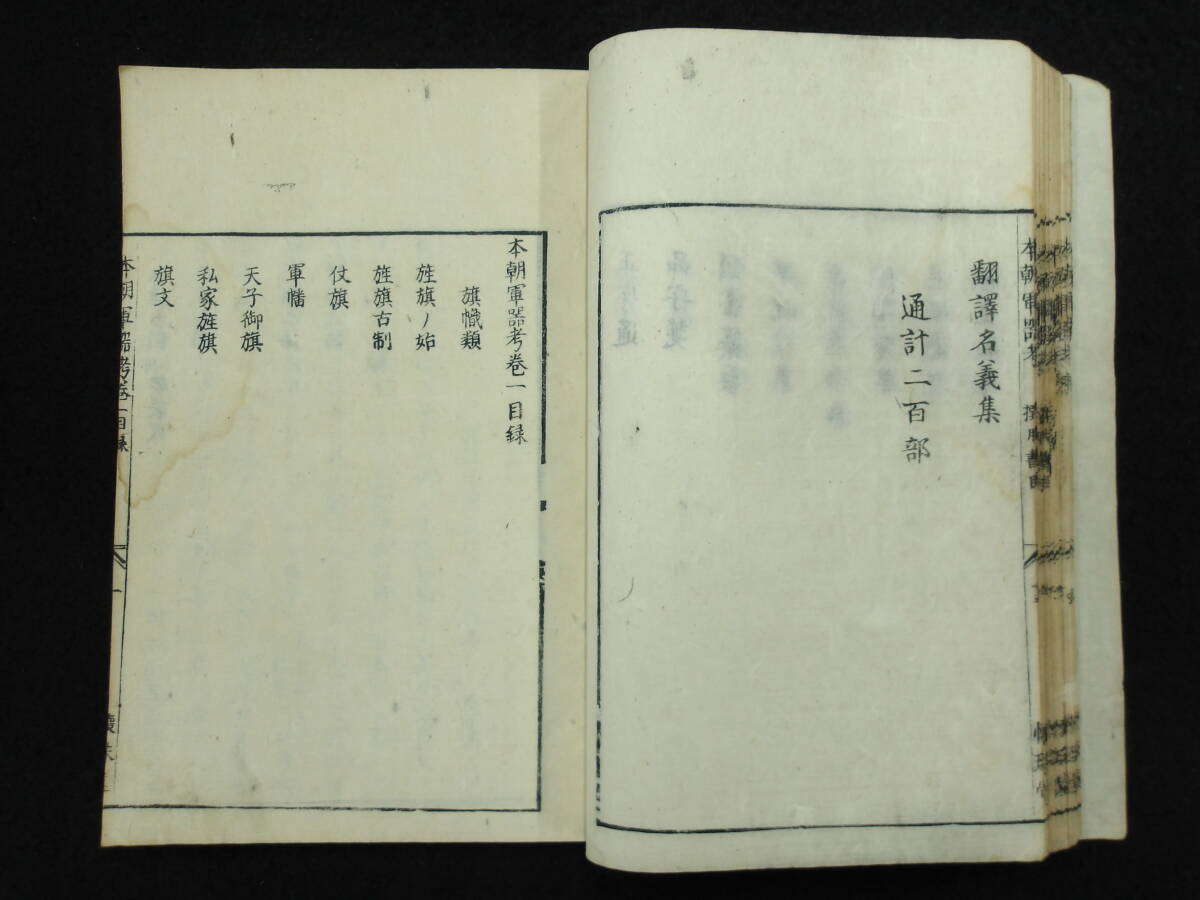 翻譯名義集
通計二百部
本朝軍器考
本朝軍器考巻一目録
旗幟類
旌旗ノ始
旌旗古制
仗旗
軍幡
天子御旗
私家旌旗
旗文
本朝軍器考巻一目録
一